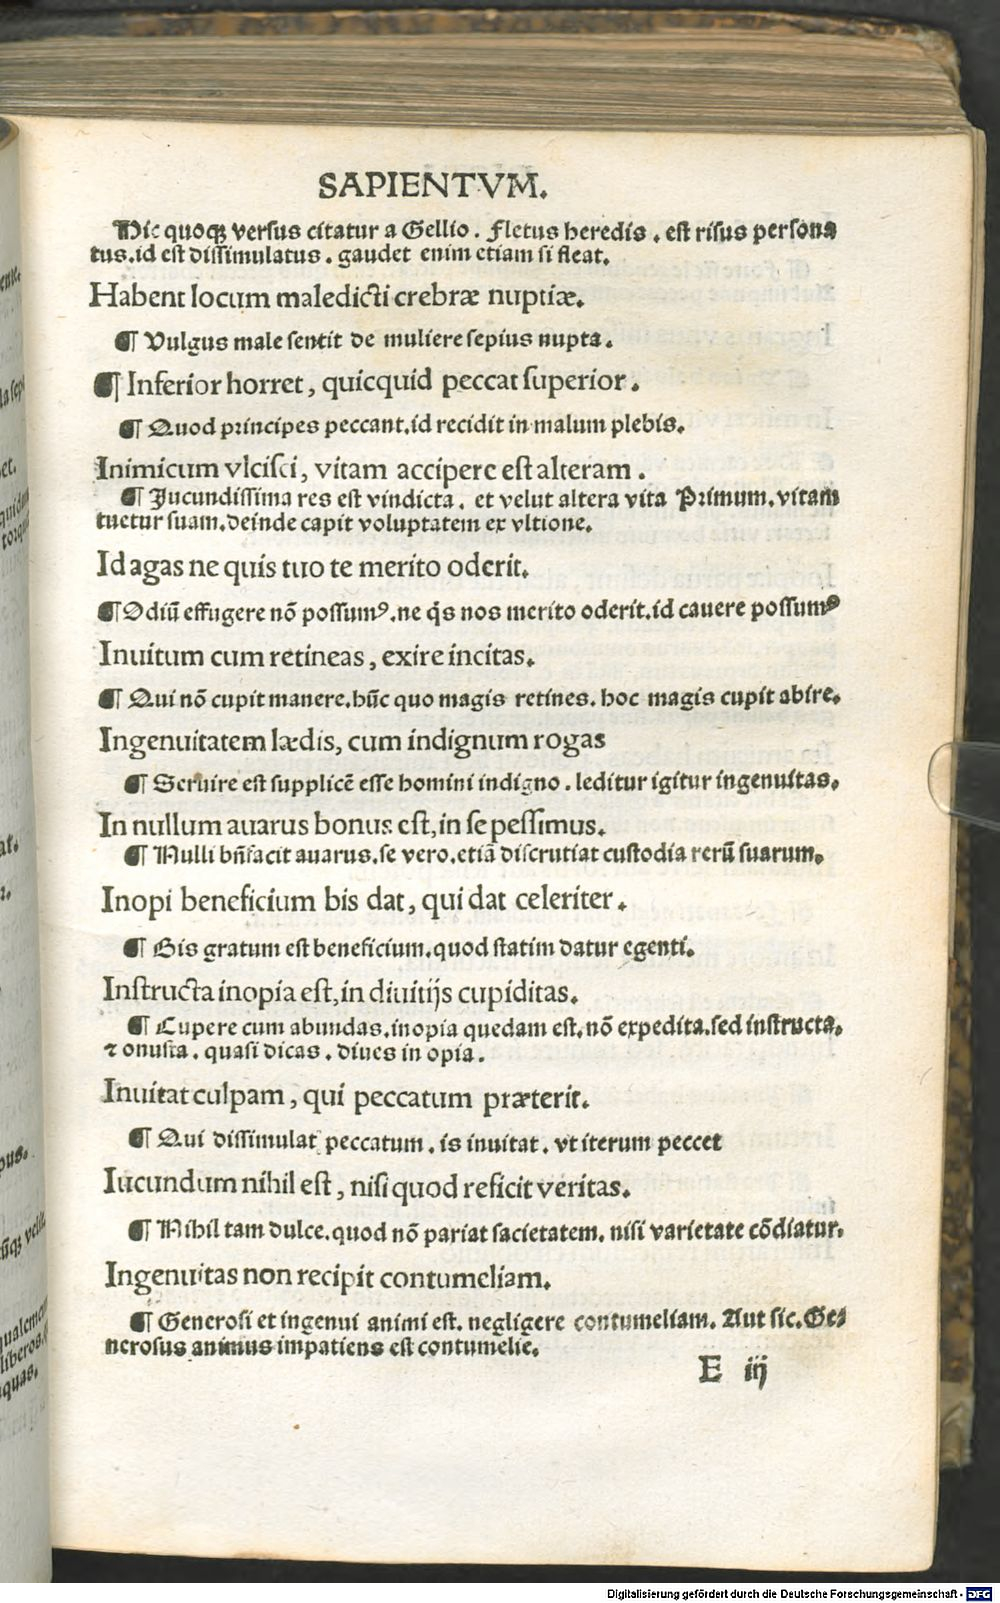 SAPIENTVM.
Hic quoqꝫ versus citatur a Gellio. fletus heredis. est risus persona
tus. id est dissimulatus. gaudet enim etiam si fleat.
Habent locum maledicti crebræ nuptiæ.
¶ Vulgus male sentit de muliere sepius nupta.
¶ Inferior horret, quicquid peccat superior.
¶ Quod principes peccant. id recidit in malum plebis.
Inimicum vlcisci, vitam accipere est alteram.
¶ Jucundissima res est vindicta. et velut altera vita Primum. vitam
tuetur suam. deinde capit voluptatem ex vltione.
Id agas ne quis tuo te merito oderit.
¶ Odiū effugere nō possumꝰ. ne q̇s nos merito oderit. id cauere possumꝰ
Inuitum cum retineas, exire incitas.
¶ Qui nō cupit manere. hūc quo magis retines. hoc magis cupit abire.
Ingenuitatem lædis, cum indignum rogas
¶ Seruire est supplicē esse homini indigno. leditur igitur ingenuitas.
In nullum auarus bonus est, in se pessimus.
¶ Nulli bn̄facit auarus. se vero. etiā discrutiat custodia rerū suarum.
Inopi beneficium bis dat, qui dat celeriter.
¶ Bis gratum est beneficium. quod statim datur egenti.
Instructa inopia est, in diuitijs cupiditas.
¶ Cupere cum abundas. inopia quedam est. nō expedita. sed instructa.
⁊ onusta. quasi dicas. diues in opia.
Inuitat culpam, qui peccatum præterit.
¶ Qui dissimulat peccatum. is inuitat. vt iterum peccet
Iucundum nihil est, nisi quod reficit veritas.
¶ Nihil tam dulce. quod nō pariat sacietatem. nisi varietate cōdiatur.
Ingenuitas non recipit contumeliam.
¶ Generosi et ingenui animi est. negligere contumeliam. Aut sic. Ge⸗
nerosus animus impatiens est contumelie.
E iij
Digitalisierung gefördert durch die Deutsche Forschungsgemeinschaft - DFG